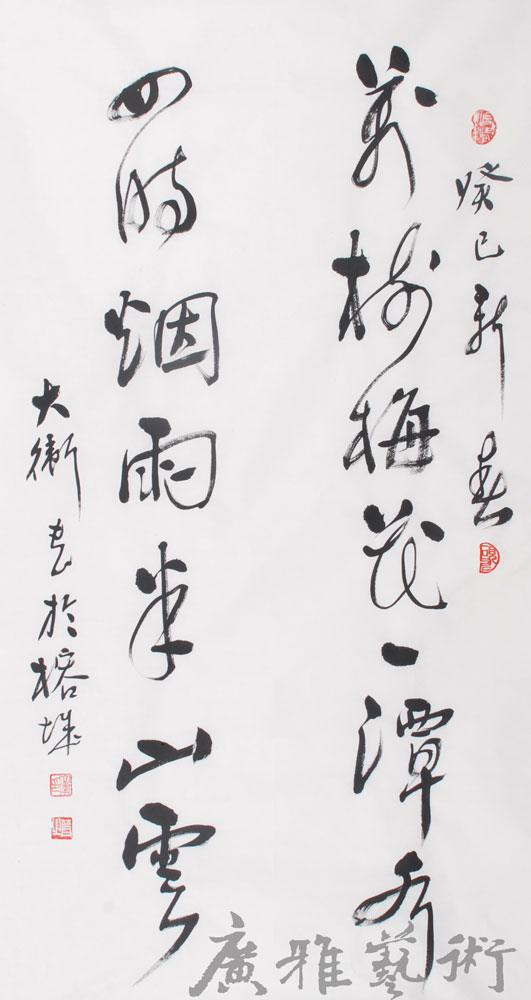 癸巳新春
萬樹梅花一潭水
四時烟雨半山雲
大衛書於榕城
廣雅藝術